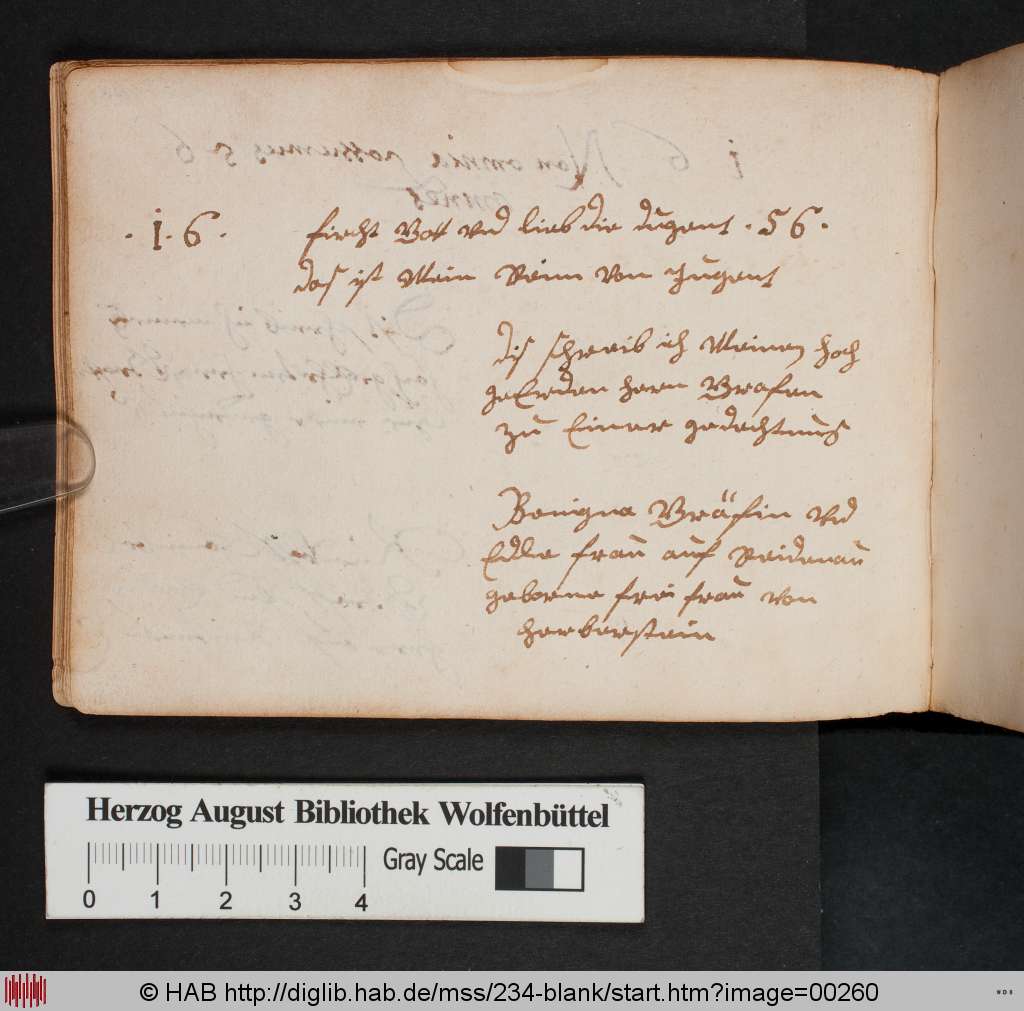 . i. 6 . fircht Gott vnd lieb die dugent . 56 .
das ist Mein Reim von Jugent
dis schreib ich Meinen hoch
geErden hern Grafen
zu Einer gedechtnus
Benigna Gräfin vnd
Edle frau auf
geborne frei frau von
herberstein
Herzog August Bibliothek Wolfenbüttel
Gray Scale
0 1 2 3 4
© HAB http://diglib.hab.de/mss/234-blank/start.htm?image=00260